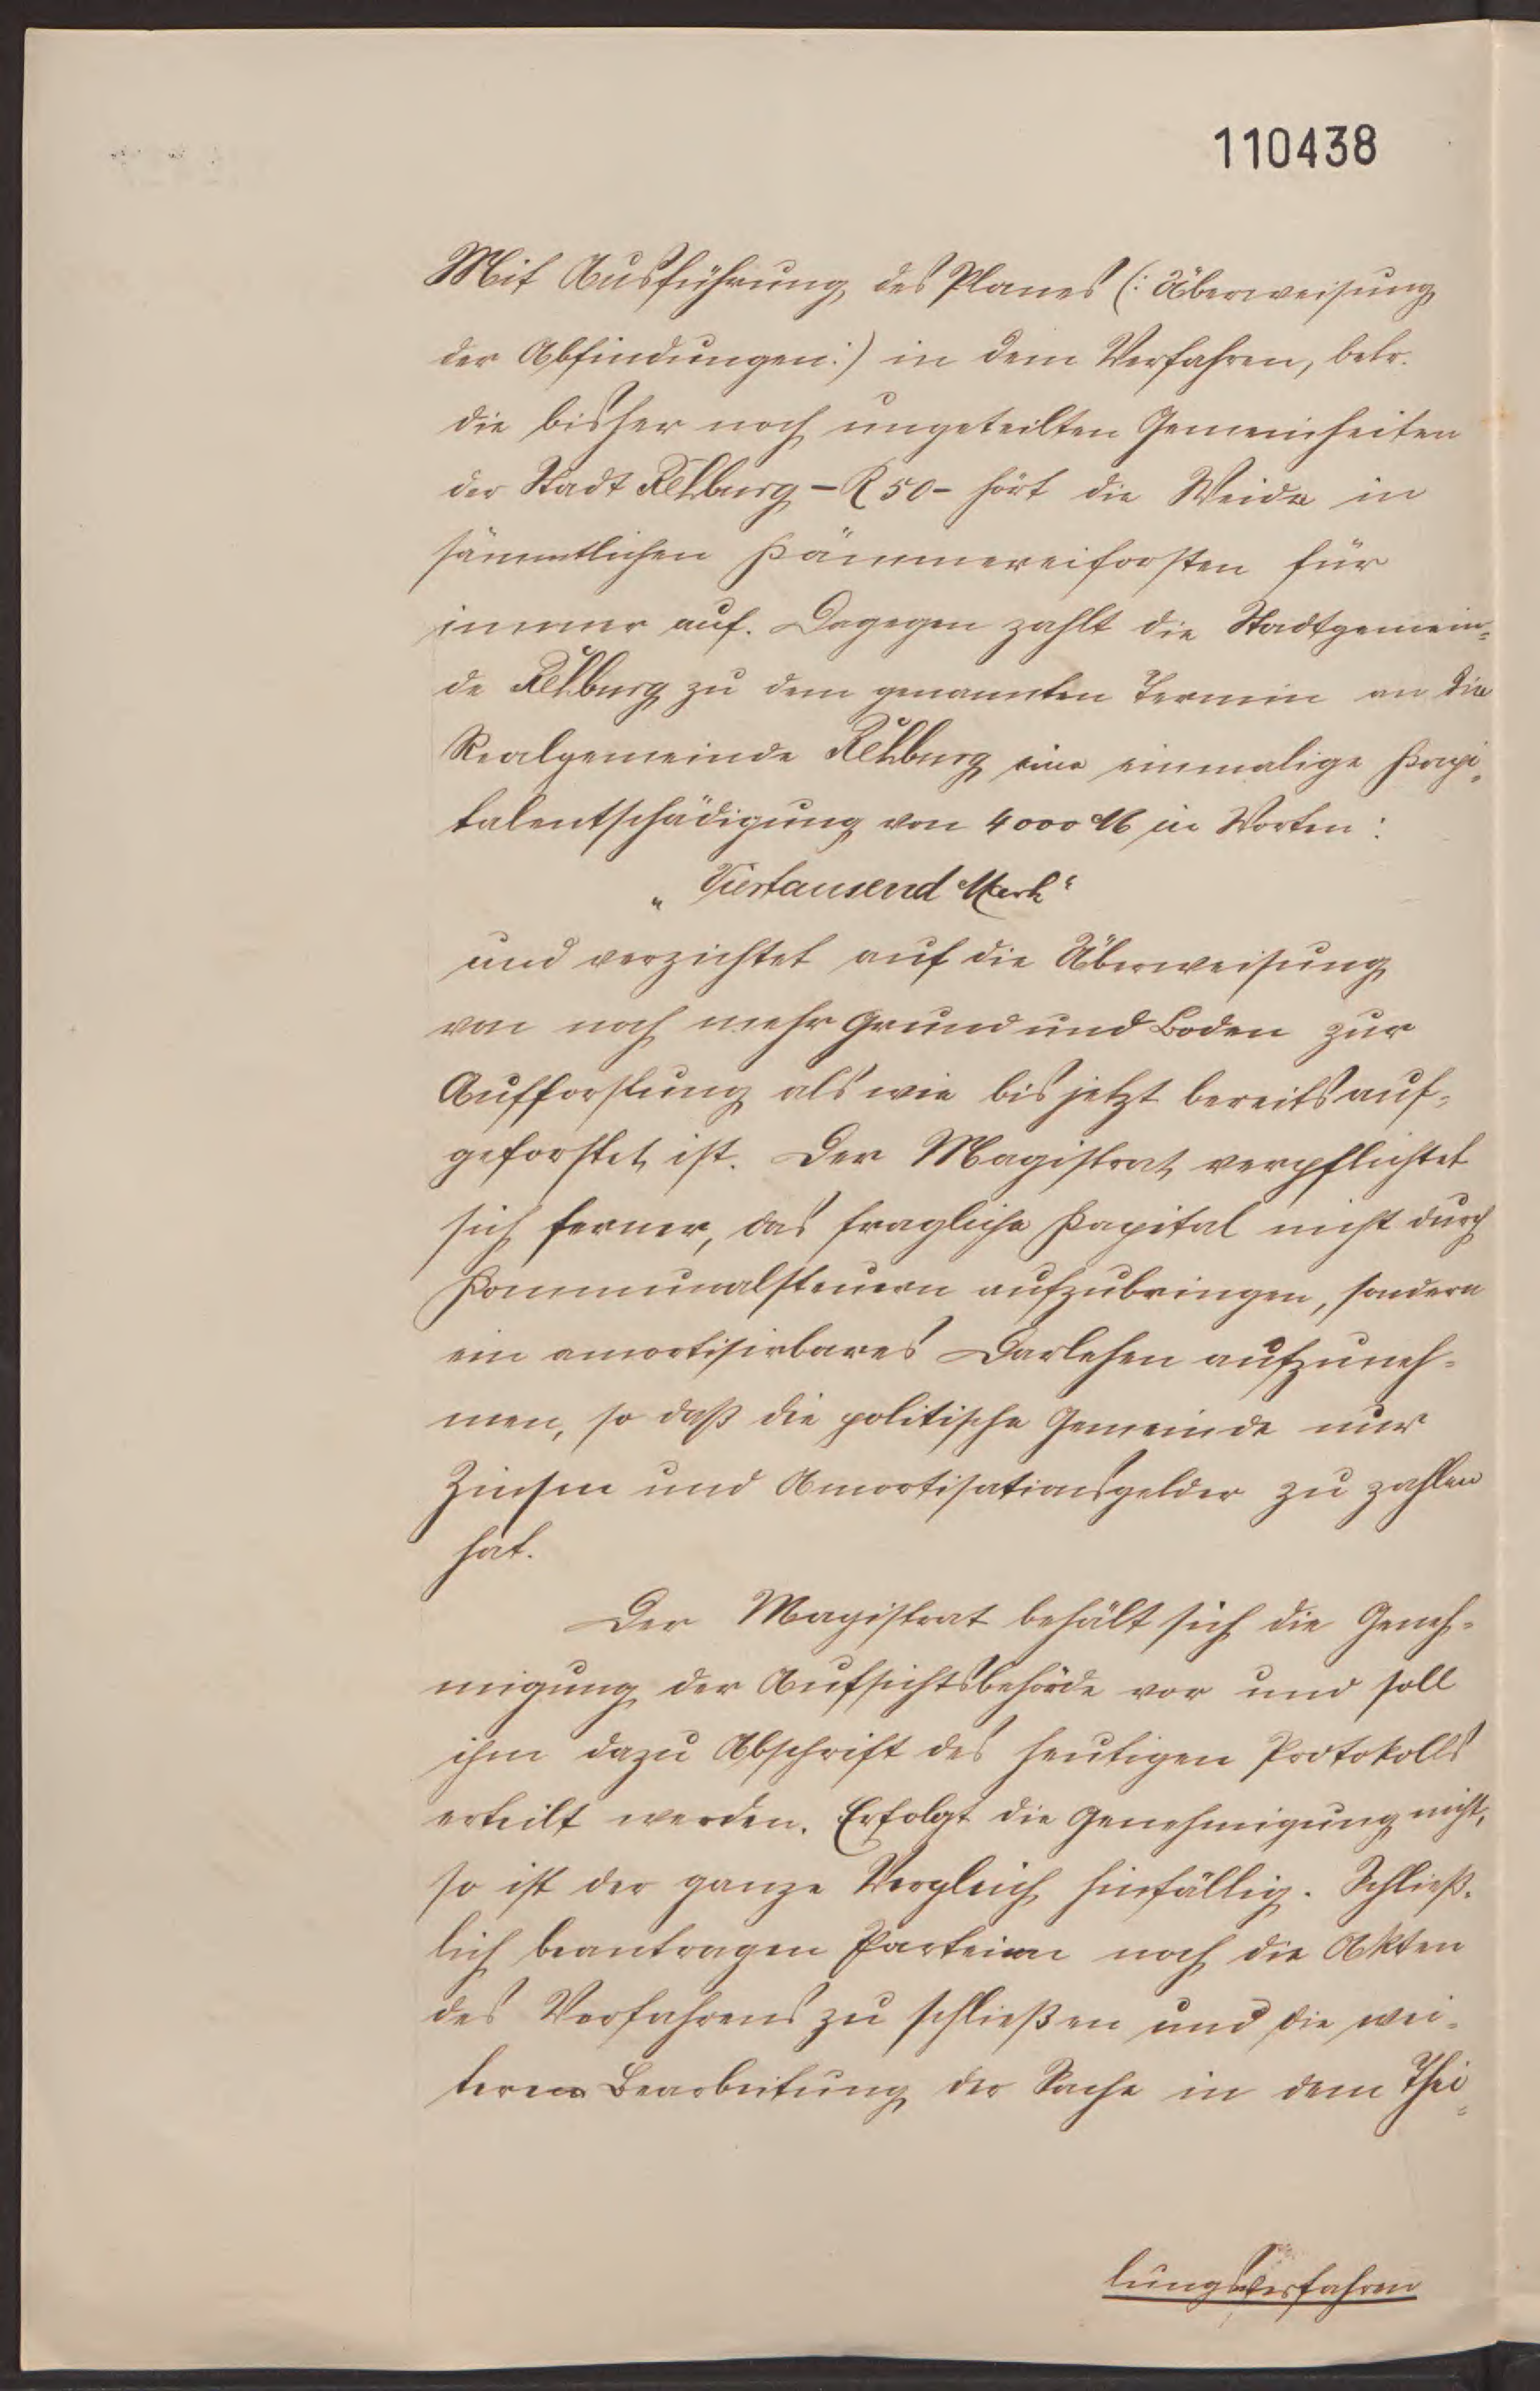 110438
Mit Ausführung des Planes (: Überweisung
der Abfindungen :) in dem Verfahren, betr.
die bisher noch ungeteilten Gemeinheiten
der Stadt Rehburg - R 50 - hört die Weide in
sämmtlichen Kämmereiforsten für
immer auf. Dagegen zahlt die Stadtgemein-
de Rehburg zu dem genannten Termin an die
Realgemeinde Rehburg eine einmalige Kapi-
talentschädigung von 4000 M in Worten:
„Viertausend Mark“
und verzichtet auf die Überweisung
von noch mehr Grund und Boden zur
Aufforstung als wie bis jetzt bereits auf-
geforstet ist. Der Magistrat verpflichtet
sich ferner, das fragliche Kapital nicht durch
Kommunalsteuern aufzubringen, sondern
ein amortisirbares Darlehen aufzuneh-
men, so daß die politische Gemeinde nur
Zinsen und Amortisationsgelder zu zahlen
hat.
Der Magistrat behält sich die Geneh-
migung der Aufsichtsbehörde vor und soll
ihm dazu Abschrift des heutigen Protokolls
erteilt werden. Erfolgt die Genehmigung nicht,
so ist der ganze Vergleich hinfällig. Schließ-
lich beantragen Parteien noch die Akten
des Verfahrens zu schließen und die wei-
teren Bearbeitung der Sache in dem Thei-
lungsverfahren